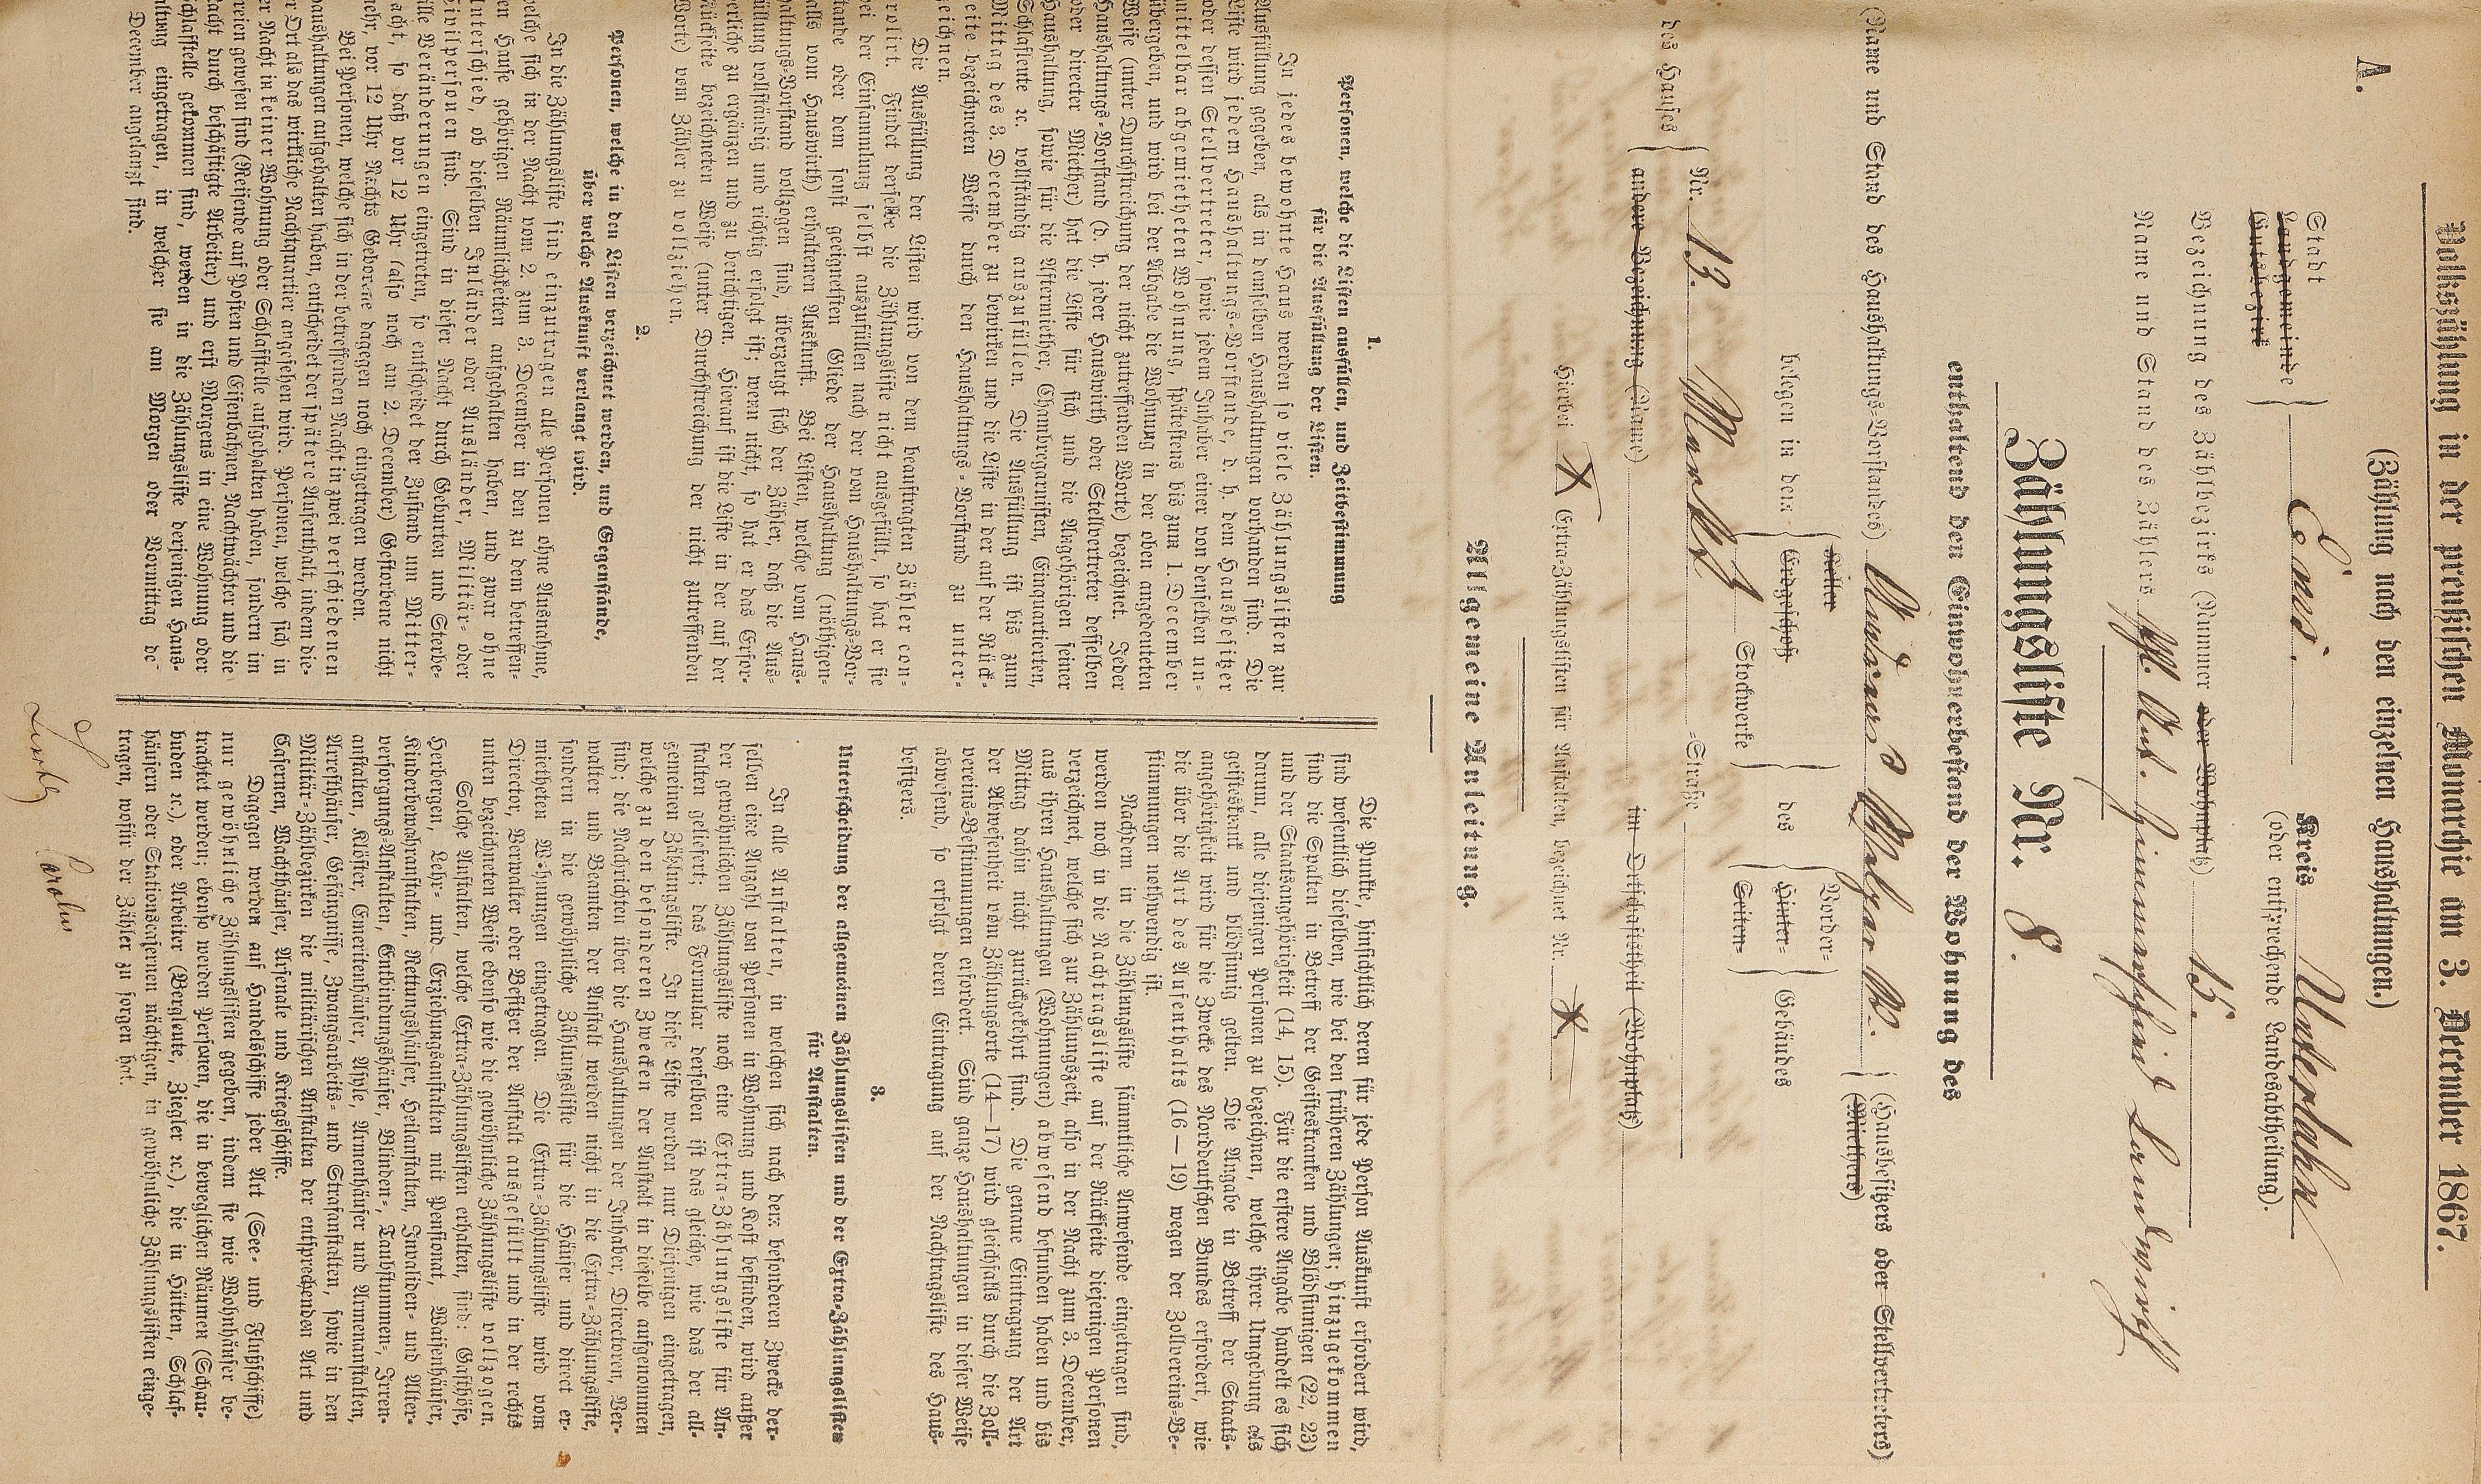 A.
Volkszählung in der preußischen Monarchie am 3. December 1867.
(Zählung nach den einzelnen Haushaltungen.)
Stadt
Landgemeinde
Gutsbezirk
Ems.
Kreis Unterlahn
(oder entsprechende Landesabtheilung).
Bezeichnung des Zählbezirks (Nummer oder Wohnplatz) 15.
Name und Stand des Zählers
Zählungsliste Nr. 8.
enthaltend den Einwohnerbestand der Wohnung des
(Name und Stand des Haushaltungs-Vorstandes)
(Hausbesitzers oder Stellvertreters)
(Miethers)
belegen in dem
Keller
Erdgeschoß
Stockwerke
des
Vorder-
Hinter-
Seiten-
Gebäudes
des Hauses
Nr. 13. Markt -Straße
andere Bezeichnung (Name) im Ortschaftstheil (Wohnplatz)
Hierbei X Extra-Zählungslisten für Anstalten, bezeichnet Nr. X
Allgemeine Anleitung.
1.
Personen, welche die Listen ausfüllen, und Zeitbestimmung
für die Ausfüllung der Listen.
In jedes bewohnte Haus werden so viele Zählungslisten zur
Ausfüllung gegeben, als in demselben Haushaltungen vorhanden sind. Die
Liste wird jedem Haushaltungs-Vorstande, d. h. dem Hausbesitzer
oder dessen Stellvertreter, sowie jedem Inhaber einer von denselben un-
mittelbar abgemietheten Wohnung, spätestens bis zum 1. December
übergeben, und wird bei der Abgabe die Wohnung in der oben angedeuteten
Weise (unter Durchstreichung der nicht zutreffenden Worte) bezeichnet. Jeder
Haushaltungs-Vorstand (d. h. jeder Hauswirth oder Stellvertreter desselben
oder directer Miether) hat die Liste für sich und die Angehörigen seiner
Haushaltung, sowie für die Aftermiether, Chambregarnisten, Einquartierten,
Schlafleute ꝛc. vollständig auszufüllen. Die Ausfüllung ist bis zum
Mittag des 3. December zu bewirken und die Liste in der auf der Rück-
seite bezeichneten Weise durch den Haushaltungs-Vorstand zu unter-
zeichnen.
Die Ausfüllung der Listen wird von dem beauftragten Zähler con-
trolirt. Findet derselbe die Zählungsliste nicht ausgefüllt, so hat er sie
bei der Einsammlung selbst auszufüllen nach der vom Haushaltungs-Vor-
stande oder dem sonst geeignetsten Gliede der Haushaltung (nöthigen-
falls vom Hauswirth) erhaltenen Auskunft. Bei Listen, welche vom Haus-
haltungs-Vorstand vollzogen sind, überzeugt sich der Zähler, daß die Aus-
füllung vollständig und richtig erfolgt ist; wenn nicht, so hat er das Erfor-
derliche zu ergänzen und zu berichtigen. Hierauf ist die Liste in der auf der
Rückseite bezeichneten Weise (unter Durchstreichung der nicht zutreffenden
Worte) vom Zähler zu vollziehen.
2.
Personen, welche in den Listen verzeichnet werden, und Gegenstände,
über welche Auskunft verlangt wird.
In die Zählungsliste sind einzutragen alle Personen ohne Ausnahme,
welche sich in der Nacht vom 2. zum 3. December in den zu dem betreffen-
den Hause gehörigen Räumlichkeiten aufgehalten haben, und zwar ohne
Unterschied, ob dieselben Inländer oder Ausländer, Militär- oder
Civilpersonen sind. Sind in dieser Nacht durch Geburten und Sterbe-
fälle Veränderungen eingetreten, so entscheidet der Zustand um Mitter-
nacht, so daß vor 12 Uhr (also noch am 2. December) Gestorbene nicht
mehr, vor 12 Uhr Nachts Geborene dagegen noch eingetragen werden.
Bei Personen, welche sich in der betreffenden Nacht in zwei verschiedenen
Haushaltungen aufgehalten haben, entscheidet der spätere Aufenthalt, indem die-
ser Ort als das wirkliche Nachtquartier angesehen wird. Personen, welche sich in
der Nacht in keiner Wohnung oder Schlafstelle aufgehalten haben, sondern im
Freien gewesen sind (Reisende auf Posten und Eisenbahnen, Nachtwächter und die
Nacht durch beschäftigte Arbeiter) und erst Morgens in eine Wohnung oder
Schlafstelle gekommen sind, werden in die Zählungsliste derjenigen Haus-
haltung eingetragen, in welcher sie an Morgen oder Vormittag de
December angelangt sind.
Die Punkte, hinsichtlich deren für jede Person Auskunft erfordert wird,
sind wesentlich dieselben, wie bei den früheren Zählungen; hinzugekommen
sind die Spalten in Betreff der Geisteskranken und Blödsinnigen (22, 23)
und der Staatsangehörigkeit (14, 15). Für die erstere Angabe handelt es sich
darum, alle diejenigen Personen zu bezeichnen, welche ihrer Umgebung als
geisteskrank und blödsinnig gelten. Die Angabe in Betreff der Staats-
angehörigkeit wird für die Zwecke des Norddeutschen Bundes erfordert, wie
die über die Art des Aufenthalts (16—19) wegen der Zollvereins-Be-
stimmungen nothwendig ist.
Nachdem in die Zählungsliste sämmtliche Anwesende eingetragen sind,
werden noch in die Nachtragsliste auf der Rückseite diejenigen Personen
verzeichnet, welche sich zur Zählungszeit, also in der Nacht zum 3. December,
aus ihren Haushaltungen (Wohnungen) abwesend befunden haben und bis
Mittag dahin nicht zurückgekehrt sind. Die genaue Eintragung der Art
der Abwesenheit vom Zählungsorte (14—17) wird gleichfalls durch die Zoll-
vereins-Bestimmungen erfordert. Sind ganze Haushaltungen in dieser Weise
abwesend, so erfolgt deren Eintragung auf der Nachtragsliste des Haus-
besitzers.
3.
Unterscheidung der allgemeinen Zählungslisten und der Extra-Zählungslisten
für Anstalten.
In alle Anstalten, in welchen sich nach dem besonderen Zwecke der-
selben eine Anzahl von Personen in Wohnung und Kost befinden, wird außer
der gewöhnlichen Zählungsliste noch eine Extra-Zählungsliste für An-
stalten geliefert; das Formular derselben ist das gleiche, wie das der all-
gemeinen Zählungsliste. In diese Liste werden nur Diejenigen eingetragen,
welche zu den besonderen Zwecken der Anstalt in dieselbe aufgenommen
sind; die Nachrichten über die Haushaltungen der Inhaber, Directoren, Ver-
walter und Beamten der Anstalt werden nicht in die Extra-Zählungsliste,
sondern in die gewöhnliche Zählungsliste für die Häuser und direct er-
mietheten Wohnungen eingetragen. Die Extra-Zählungsliste wird vom
Director, Verwalter oder Besitzer der Anstalt ausgefüllt und in der rechts
unten bezeichneten Weise ebenso wie die gewöhnliche Zählungsliste vollzogen.
Solche Anstalten, welche Extra-Zählungslisten erhalten, sind: Gasthöfe,
Herbergen, Lehr- und Erziehungsanstalten mit Pensionat, Waisenhäuser,
Kinderbewahranstalten, Rettungshäuser, Heilanstalten, Invaliden- und Alter-
versorgungs-Anstalten, Entbindungshäuser, Blinden-, Taubstummen-, Irren-
anstalten, Klöster, Emeritenhäuser, Asyle, Armenhäuser und Armenanstalten,
Arresthäuser, Gefängnisse, Zwangsarbeits- und Strafanstalten, sowie in den
Militär-Zählbezirken die militärischen Anstalten der entsprechenden Art und
Casernen, Wachthäuser, Arsenale und Kriegsschiffe.
Dagegen werden auf Handelsschiffe jeder Art (See- und Flußschiffe)
nur gewöhnliche Zählungslisten gegeben, indem sie wie Wohnhäuser be-
trachtet werden; ebenso werden Personen, die in beweglichen Räumen (Schau-
buden ꝛc.), oder Arbeiter (Bergleute, Ziegler ꝛc.), die in Hütten, Schlaf-
häusern oder Stationscasernen nächtigen, in gewöhnliche Zählungslisten einge-
tragen, wofür der Zähler zu sorgen hat.